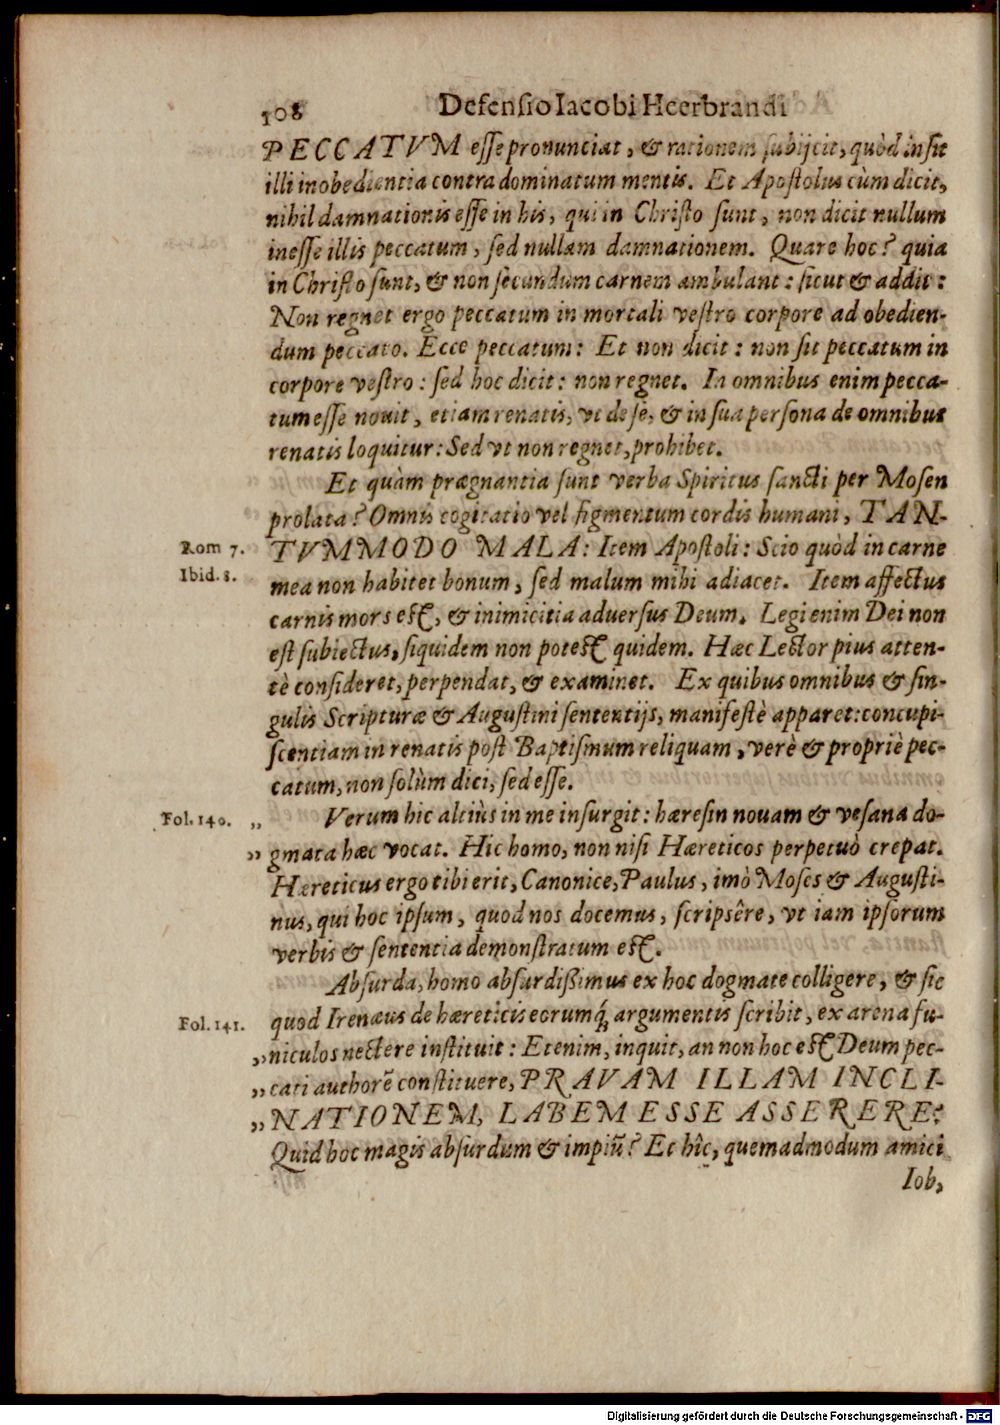 108 Defensio Iacobi Heerbrandi
PECCATVM esse pronunciat, & rationem subijcit, quòd insit
illi inobedientia contra dominatum mentis. Et Apostolus cùm dicit,
nihil damnationis esse in his, qui in Christo sunt, non dicit nullum
inesse illis peccatum, sed nullam damnationem. Quare hoc? quia
in Christo sunt, & non secundum carnem ambulant: sicut & addit:
Non regnet ergo peccatum in mortali vestro corpore ad obedien-
dum peccato. Ecce peccatum: Et non dicit: non sit peccatum in
corpore vestro: sed hoc dicit: non regnet. In omnibus enim pecca-
tum esse nouit, etiam renatis, vt de se, & in sua persona de omnibus
renatis loquitur: Sed vt non regnet, prohibet.
Et quàm prægnantia sunt verba Spiritus sancti per Mosen
prolata? Omnis cogitatio vel figmentum cordis humani, TAN-
Rom 7. TVMMODO MALA: Item Apostoli: Scio quòd in carne
Ibid. 8. mea non habitet bonum, sed malum mihi adiacet. Item affectus
carnis mors est, & inimicitia aduersus Deum. Legi enim Dei non
est subiectus, siquidem non potest quidem. Hæc Lector pius atten-
tè consideret, perpendat, & examinet. Ex quibus omnibus & sin-
gulis Scripturæ & Augustini sententijs, manifestè apparet: concupi-
scentiam in renatis post Baptismum reliquam, verè & propriè pec-
catum, non solùm dici, sed esse.
Fol. 140. „ Verum hic altiùs in me insurgit: hæresin nouam & vesana do-
„ gmata hæc vocat. Hic homo, non nisi Hæreticos perpetuò crepat.
Hæreticus ergo tibi erit, Canonice, Paulus, imò Moses & Augusti-
nus, qui hoc ipsum, quod nos docemus, scripsêre, vt iam ipsorum
verbis & sententia demonstratum est.
Absurda, homo absurdissimus ex hoc dogmate colligere, & sic
Fol. 141. quod Irenæus de hæreticis eorumq́ argumentis scribit, ex arena fu-
„ niculos nectere instituit: Etenim, inquit, an non hoc est Deum pec-
„ cati authorē constituere, PRAVAM ILLAM INCLI-
„ NATIONEM, LABEM ESSE ASSERERE?
Quid hoc magis absurdum & impiū? Et hîc, quemadmodum amici
Iob,
Digitalisierung gefördert durch die Deutsche Forschungsgemeinschaft - DFG